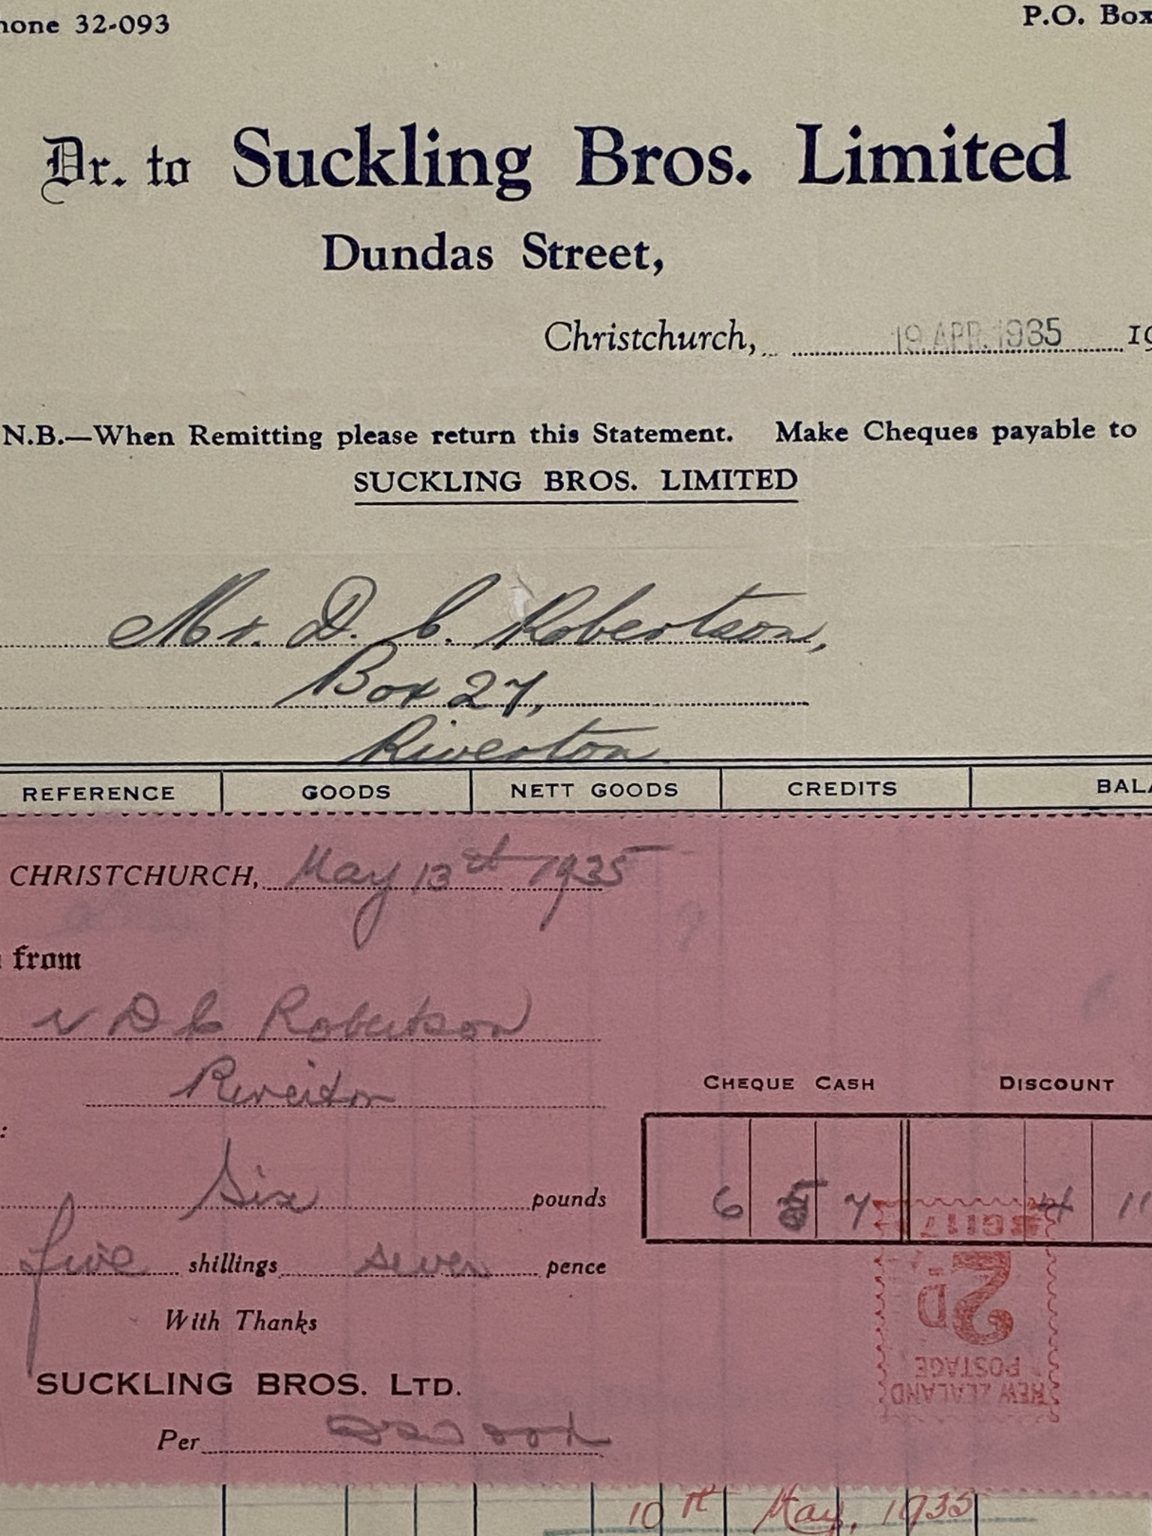 hone 32-093 P.O. Box
Dr. to Suckling Bros. Limited
Dundas Street,
Christchurch, 19 APR. 1935 19
N.B.—When Remitting please return this Statement. Make Cheques payable to
SUCKLING BROS. LIMITED
Mr. D. C. Robertson,
Box 27,
Riverton
REFERENCE GOODS NETT GOODS CREDITS BALA
CHRISTCHURCH, May 13st 1935
from
r D C Robertson
Riverton
CHEQUE CASH DISCOUNT
:
Six pounds
6 5 7 4 11
five shillings seven pence
With Thanks
SUCKLING BROS. LTD.
Per
2D
POSTAGE
NEW ZEALAND
10th May, 1935